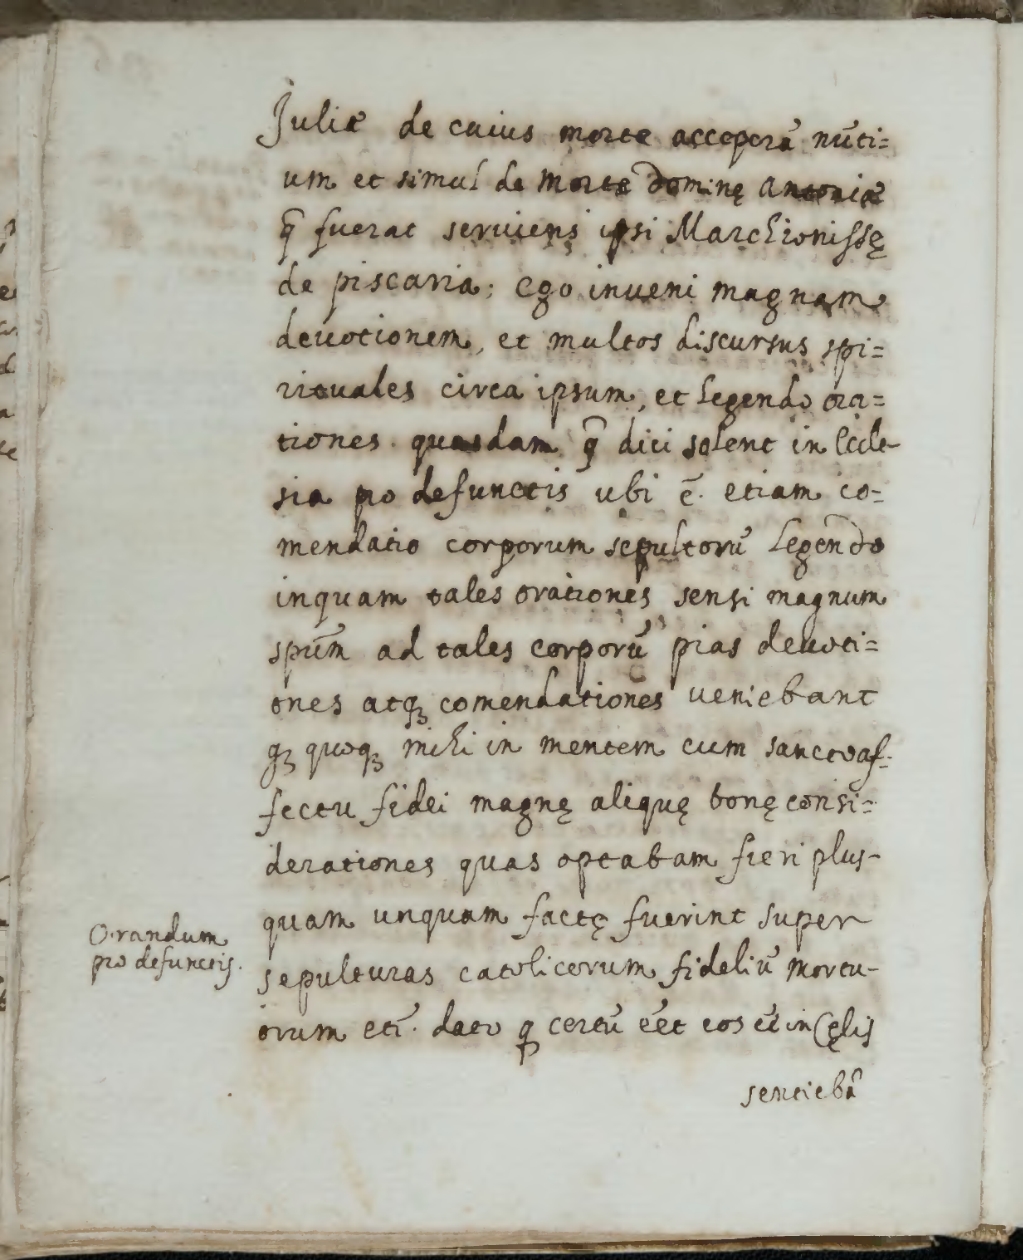 Juliæ de cuius morte acceperā nūti=
um et simul de morte dominę Antoniæ
q̄ fuerat seruiens ipsi Marchionissę
de piscaria; ego inueni magnam
deuotionem, et multos discursus spi=
rituales circa ipsum, et legendo ora=
tiones quasdam q̄ dici solent in Eccle-
sia pro defunctis ubi ē. etiam co=
mendatio corporum sepultorū legendo
inquam tales orationes sensi magnum
spūm ad tales corporū pias deuoti=
ones atqꝫ comendationes ueniebant
qꝫ quoqꝫ mihi in mentem cum sancto af-
fectu fidei magnę aliquę bonę consi=
derationes quas optabam fieri plus-
quam unquam factę fuerint super
Orandum
pro defunctis.
sepulturas catolicorum fideliū mortu-
orum etī. dato ꝙ certū eēt eos eē in Cęlis
sentiebā